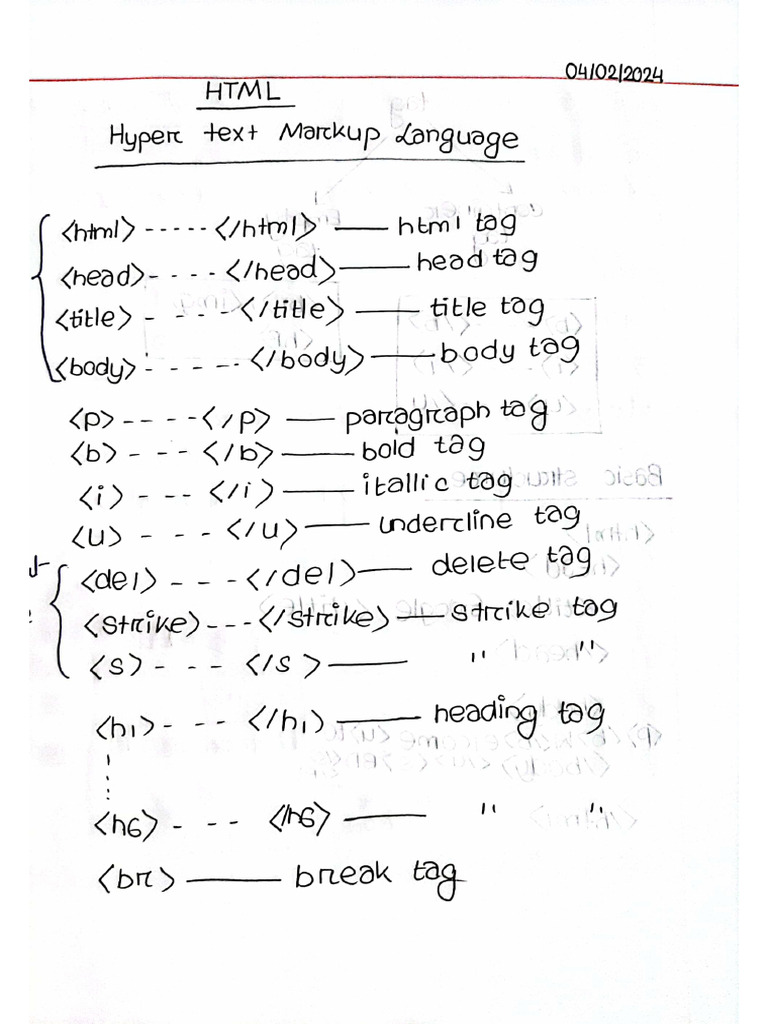 04/02/2024
HTML
Hyper text Markup Language
<html> ----- </html> — html tag
<head> - - - - </head> — head tag
<title> - - - - </title> — title tag
<body> - - - - - </body> — body tag
<p> - - - - - </p> — paragraph tag
<b> - - - - </b> — bold tag
<i> - - - - </i> — itallic tag
<u> - - - - </u> — underline tag
<del> - - - - </del> — delete tag
<strike> - - - </strike> — strike tag
<s> - - - - </s> — " "
<h1> - - - - </h1> — heading tag
<h6> - - - - </h6> — " "
<br> — break tag